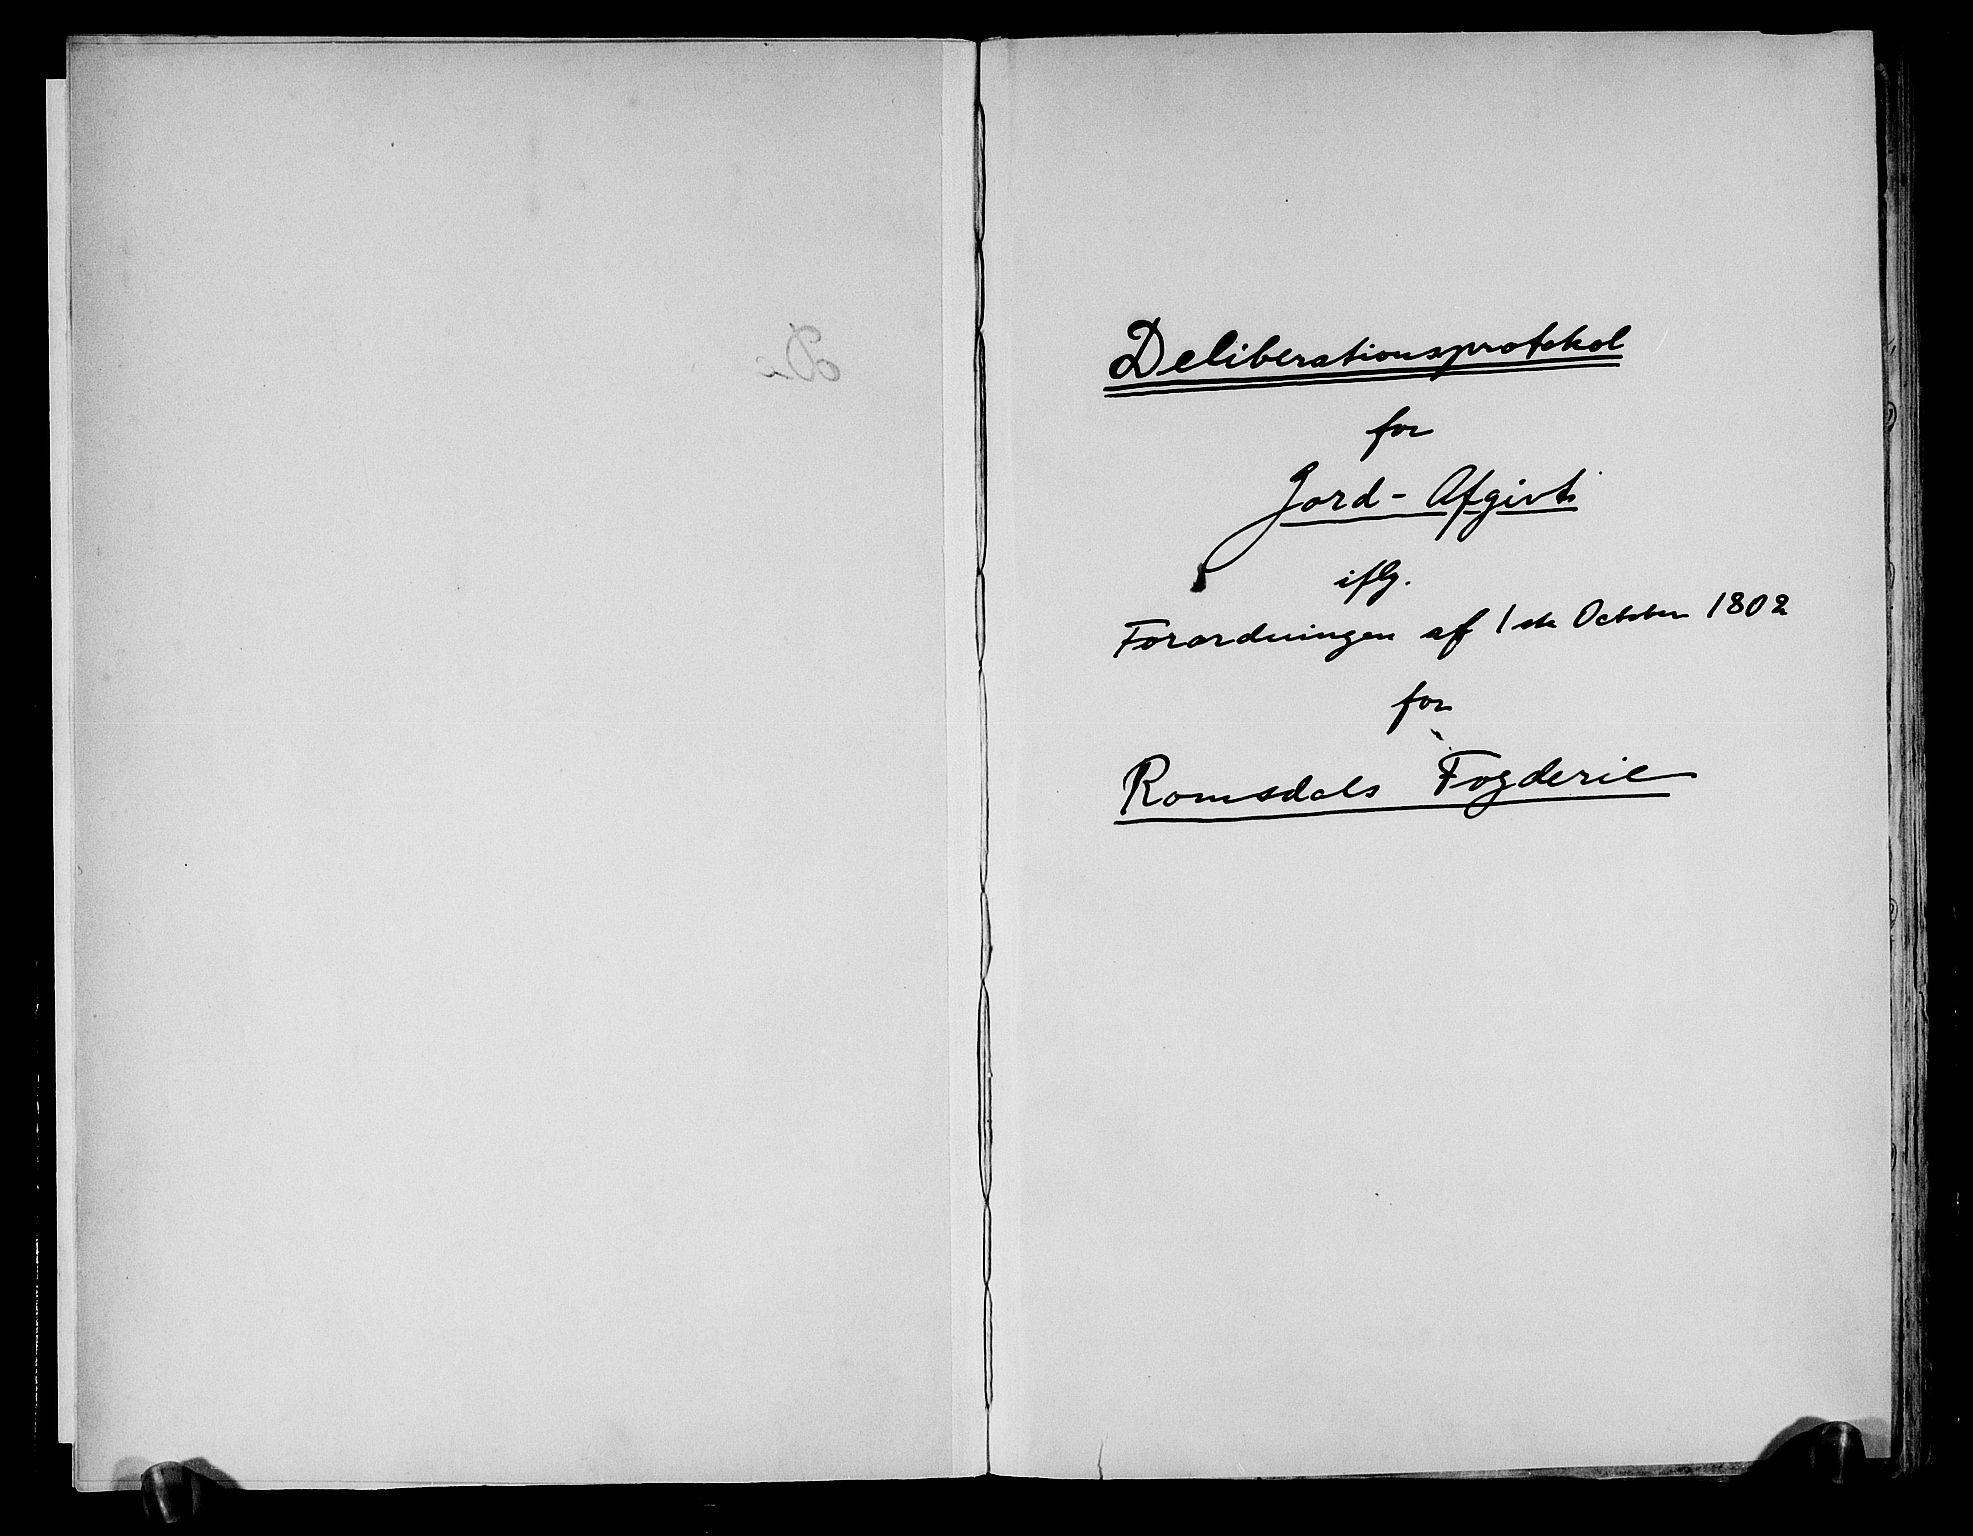 Deliberationsprotokol
for
Jord-Afgivt
iflg.
Forordningen af 1ste October 1802
for
Romsdals Fogderie